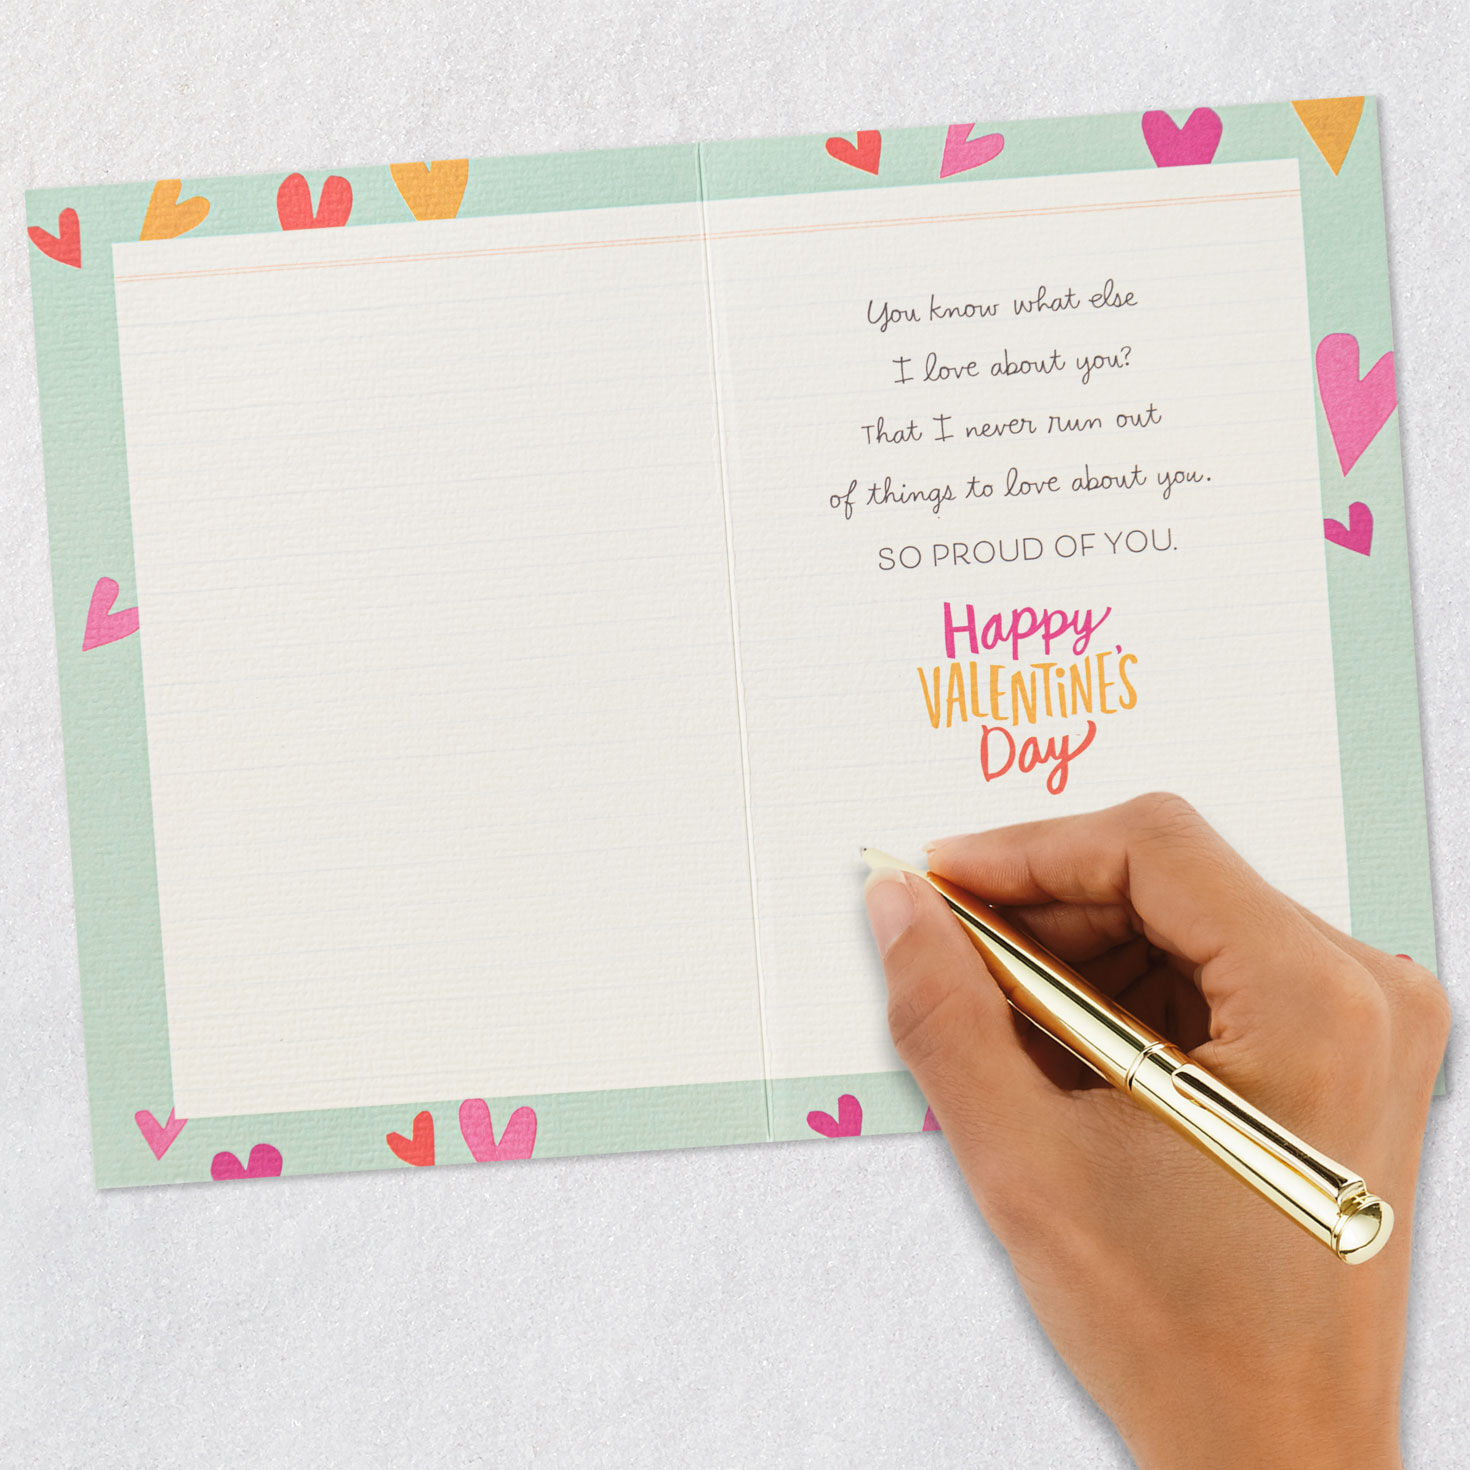 You know what else
I love about you?
That I never run out
of things to love about you.
SO PROUD OF YOU.
Happy
VALENTiNE'S
Day